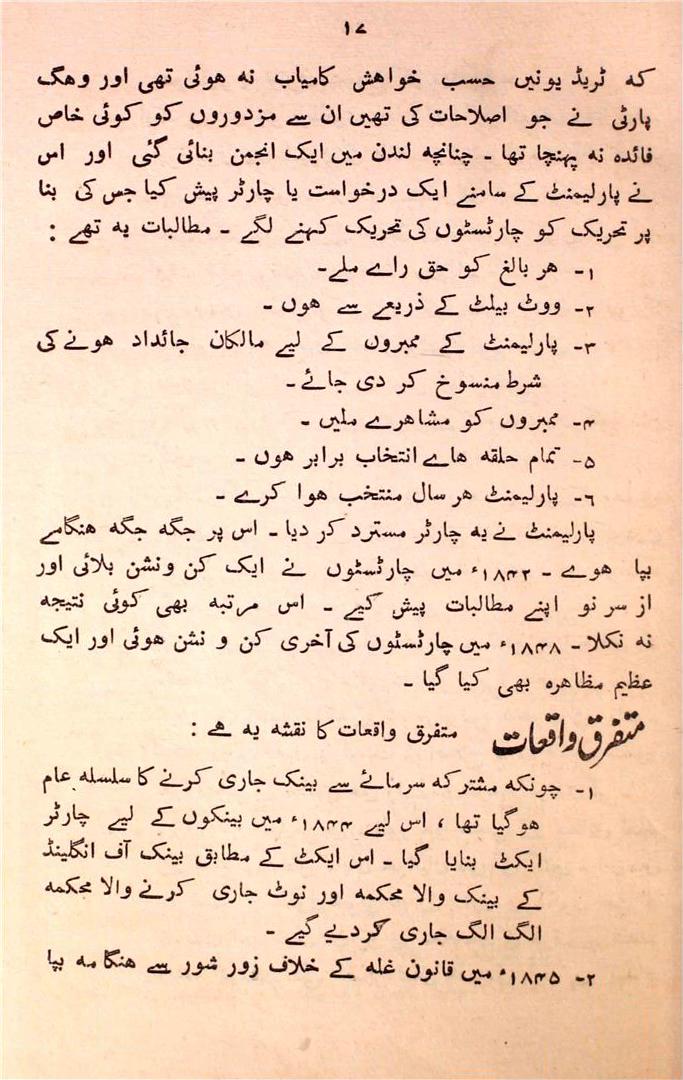 ۱۷
کہ ٹریڈ یونیں حسب خواهش کامیاب نہ ہوئی تھی اور وهگ
پارٹی نے جو اصلاحات کی تھیں ان سے مزدوروں کو کوئی خاص
فائدہ نہ پہنچا تھا ۔ چنانچہ لندن میں ایک انجمن بنائی گئی اور اس
نے پارلیمنٹ کے سامنے ایک درخواست یا چارٹر پیش کیا جس کی بنا
پر تحریک کو چارٹسٹوں کی تحریک کہنے لگے ۔ مطالبات یہ تھے :
۱۔ هر بالغ کو حق راے ملے۔
۲۔ ووٹ بیلٹ کے ذریعے سے هوں ۔
۳۔ پارلیمنٹ کے ممبروں کے لیے مالکان جائداد هونے کی
شرط منسوخ کر دی جائے۔
۴۔ ممبروں کو مشاهرے ملیں ۔
۵۔ تمام حلقه هاے انتخاب برابر هوں ۔
۶۔ پارلیمنٹ هر سال منتخب هوا کرے ۔
پارلیمنٹ نے یه چارٹر مسترد کر دیا ۔ اس پر جگه جگه هنگامے
بپا هوے ۔ ۱۸۴۲ء میں چارٹسٹوں نے ایک کن ونشن بلائی اور
از سر نو اپنے مطالبات پیش کیے ۔ اس مرتبه بھی کوئی نتیجه
نه نکلا ۔ ۱۸۴۸ء میں چارٹسٹوں کی آخری کن و نشن هوئی اور ایک
عظیم مظاهره بھی کیا گیا ۔
متفرق واقعات متفرق واقعات کا نقشه یه هے :
۱۔ چونکه مشترکه سرمائے سے بینک جاری کرنے کا سلسله عام
هوگیا تھا ، اس لیے ۱۸۴۴ء میں بینکوں کے لیے چارٹر
ایکٹ بنایا گیا ۔ اس ایکٹ کے مطابق بینک آف انگلینڈ
کے بینک والا محکمه اور نوٹ جاری کرنے والا محکمه
الگ الگ جاری کردیے گیے ۔
۲۔ ۱۸۴۵ء میں قانون غله کے خلاف زور شور سے هنگامه بپا